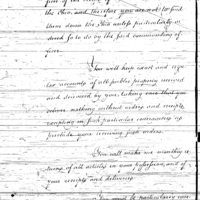 the Ohio and therefore you are not to fish
them down the Ohio unless particularly or
dered so to do by the first commanding of
ficer.
You will keep exact and regu
lar accounts of all public property received
and delivered by you, taking care that you
deliver nothing without orders and receipts,
except in such particular
preclude your receiving such orders.
You will make me monthly re
turns of all articles in your possession, and of
your receipts and deliveries.
You will be particularly care